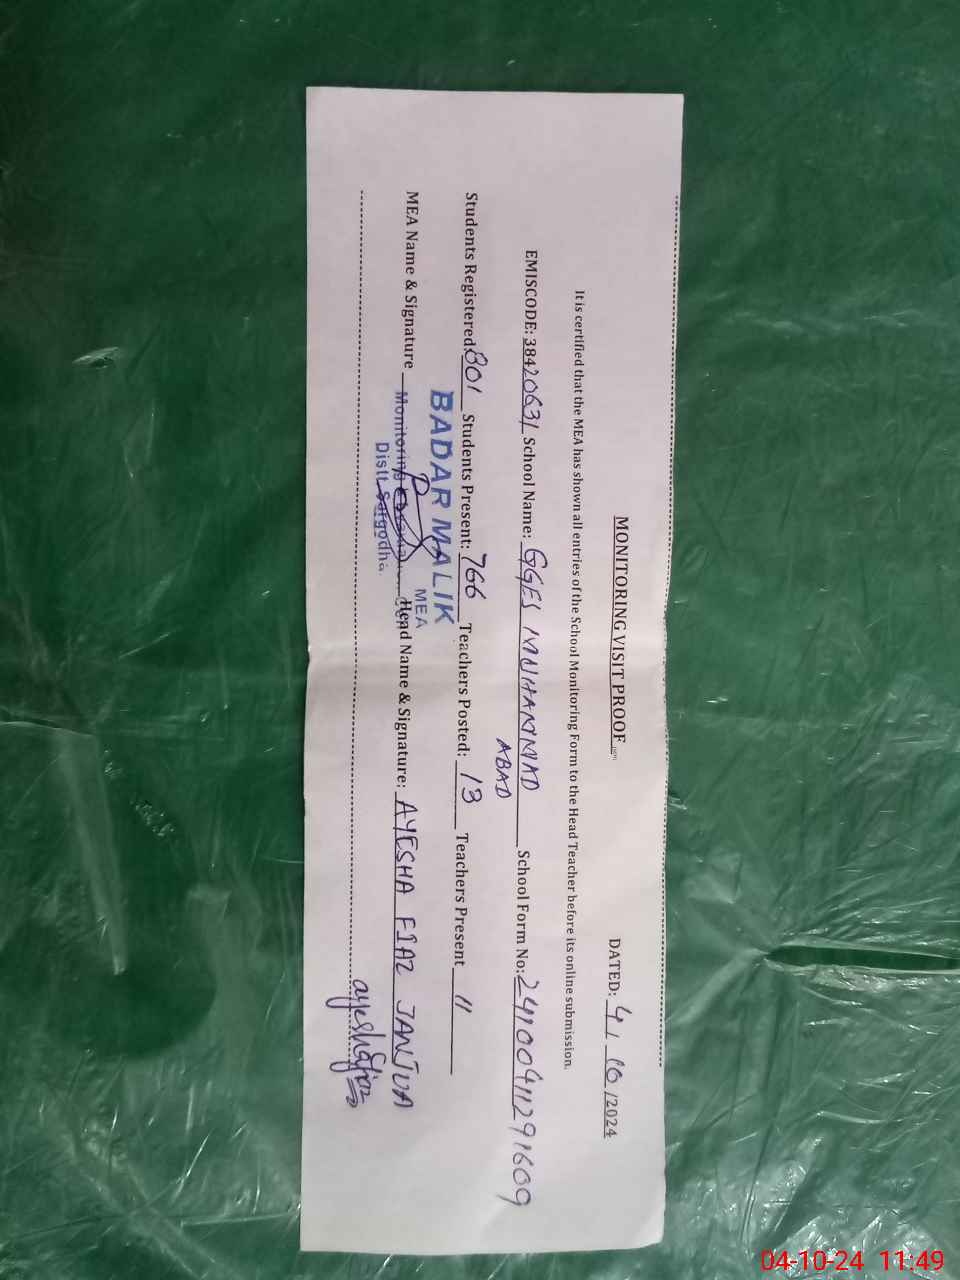 MONITORING VISIT PROOF
DATED: 4/10/2024
It is certified that the MEA has shown all entries of the School Monitoring Form to the Head Teacher before its online submission.
EMISCODE: 38420631 School Name: GGES MUHAMMAD ABAD School Form No: 24100411291609
Students Registered: 801 Students Present: 766 Teachers Posted: 13 Teachers Present 11
BADAR MALIK
MEA
MEA Name & Signature Head Name & Signature: AYESHA FIAZ JANJUA
Monitoring
Distt Sargodha.
ayeshafiaz
04-10-24 11:49